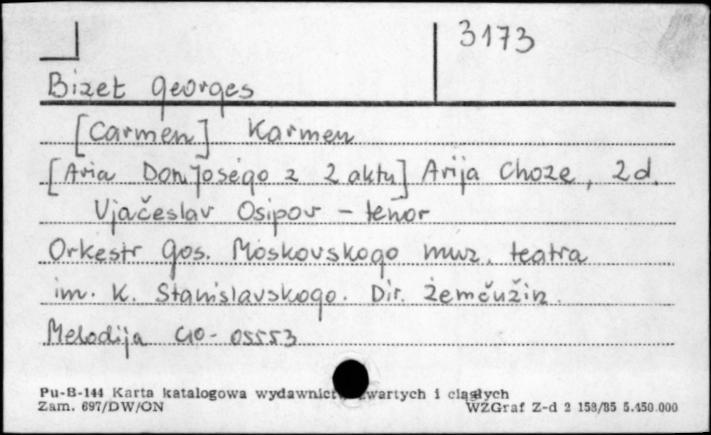 3173
Bizet Georges
[Carmen] Karmen
[Aria Don Joségo z 2 aktu] Arija Choze, 2 d.
Vjačeslav Osipov - tenor
Orkestr Gos. Moskovskogo muz. teatra
im. K. Stanislavskogo. Dir. Žemčužin.
Melodija C10-05553
Pu-B-144 Karta katalogowa wydawnictw zwartych i ciągłych
Zam. 697/DW/ON WZGraf Z-d 2 158/85 5.450.000